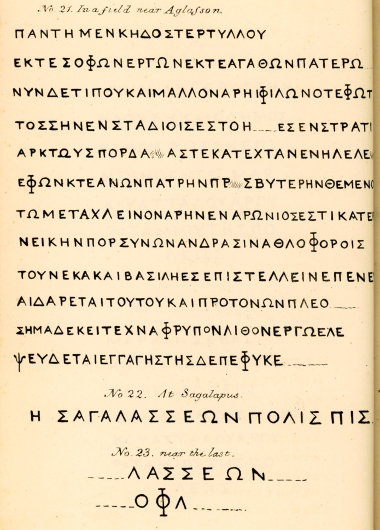 No. 21. In a field near Aglafson.
ΠΑΝΤΗΜΕΝΚΗΔΟΣΤΕΡΤΥΛΛΟΥ
ΕΚΤΕΣΟΦΩΝΕΡΓΩΝΕΚΤΕΑΓΑΘΩΝΠΑΤΕΡΩ
ΝΥΝΔΕΤΙΠΟΥΚΑΙΜΑΛΛΟΝΑΡΗΙΦΙΛΩΝΟΤΕΦΩΤ
ΤΟΣΣΗΝΕΝΣΤΑΔΙΟΙΣΕΣΤΟΗ.....ΕΣΕΝΣΤΡΑΤΙ
ΑΡΚΤΩΥΣΠΟΡΔΑ ΑΣΤΕΚΑΤΕΧΤΑΝΕΝΗΛΕΛΕ
ΕΦΩΝΚΤΕΑΝΩΝΠΑΤΡΗΝΠΡ ΣΒΥΤΕΡΗΝΘΕΜΕΝΟ
ΤΩΜΕΤΑΧΛΕΙΝΟΝΑΡΗΝΕΝΑΡΩΝΙΟΣΕΣΤΙΚΑΤΕ
ΝΕΙΚΗΝΠΟΡΣΥΝΩΝΑΝΔΡΑΣΙΝΑΘΛΟΦΟΡΟΙΣ
ΤΟΥΝΕΚΑΚΑΙΒΑΣΙΛΗΕΣΕΠΙΣΤΕΛΛΕΙΝΕΠΕΝΕ
ΑΙΔΑΡΕΤΑΙΤΟΥΤΟΥΚΑΙΠΡΟΤΟΝΩΝΠΛΕΟ.....
ΣΗΜΑΔΕΚΕΙΤΕΧΝΑΦΡΥΠΟΝΛΙΘΟΝΕΡΓΩΕΛΕ
ΨΕΥΔΕΤΑΙΕΓΓΑΓΗΣΤΗΣΔΕΠΕΦΥΚΕ.....
No 22. At Sagalapus.
Η ΣΑΓΑΛΑΣΣΕΩΝ ΠΟΛΙΣ ΠΙΣ
No. 23. near the last.
.....ΛΑΣΣΕΩΝ.....
.....ΟΦΛ.....